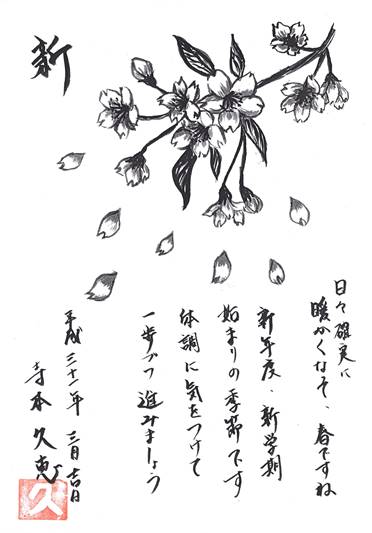 新
日々確実に
暖かくなって、春ですね
新年度、新学期
始まりの季節です
体調に気をつけて
一歩づつ進みましょう
平成三十一年 三月吉日
寺本久恵
久